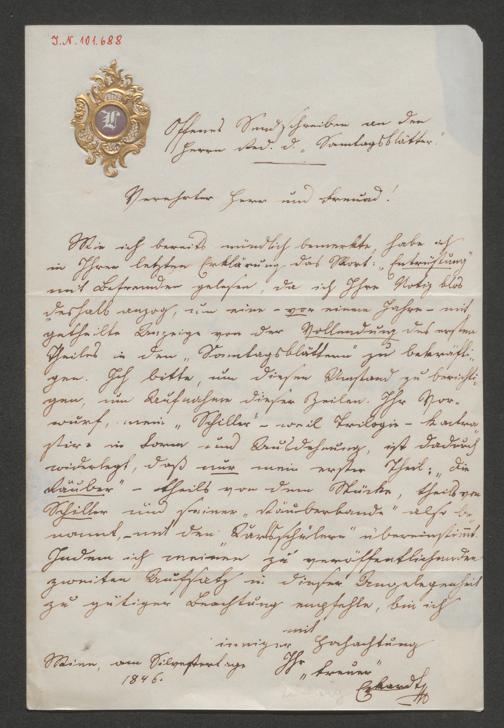 I.N. 101.688
L
Offenes Sendschreiben an den
Herrn Red. d. „Sonntagsblätter“.
Verehrter Herr und Freund!
Wie ich bereits mündlich bemerkte, habe ich
in Ihrer letzten Erklärung das Wort: „Entrüstung“
mit Befremden gelesen, da ich Ihre Notiz blos
deshalb anzog, um eine – vor einem Jahre – mit
getheilte Anzeige von der Vollendung des ersten
Theiles in den „Sonntagsblättern“ zu bekräfti-
gen. Ich bitte, um diesen Umstand zu berichti-
gen, um Aufnahme dieser Zeilen. Ihr Vor-
wurf, mein „Schiller“ – weil Trilogie –
in Form und Ausdehnung, ist dadurch
widerlegt, daß nur mein erster Theil: „die
Räuber“ – theils von dem Stücke, theils von
Schiller und seiner „Räuberbande“ also be-
nannt, – mit den „Karlsschülern“ übereinstimmt.
Indem ich meinen zu veröffentlichenden
zweiten Aufsatz in dieser Angelegenheit
zu gütiger Beachtung empfehle, bin ich
mit
inniger Hochachtung
Ihr „treuer“
Wien, am Silvestertage
1846.